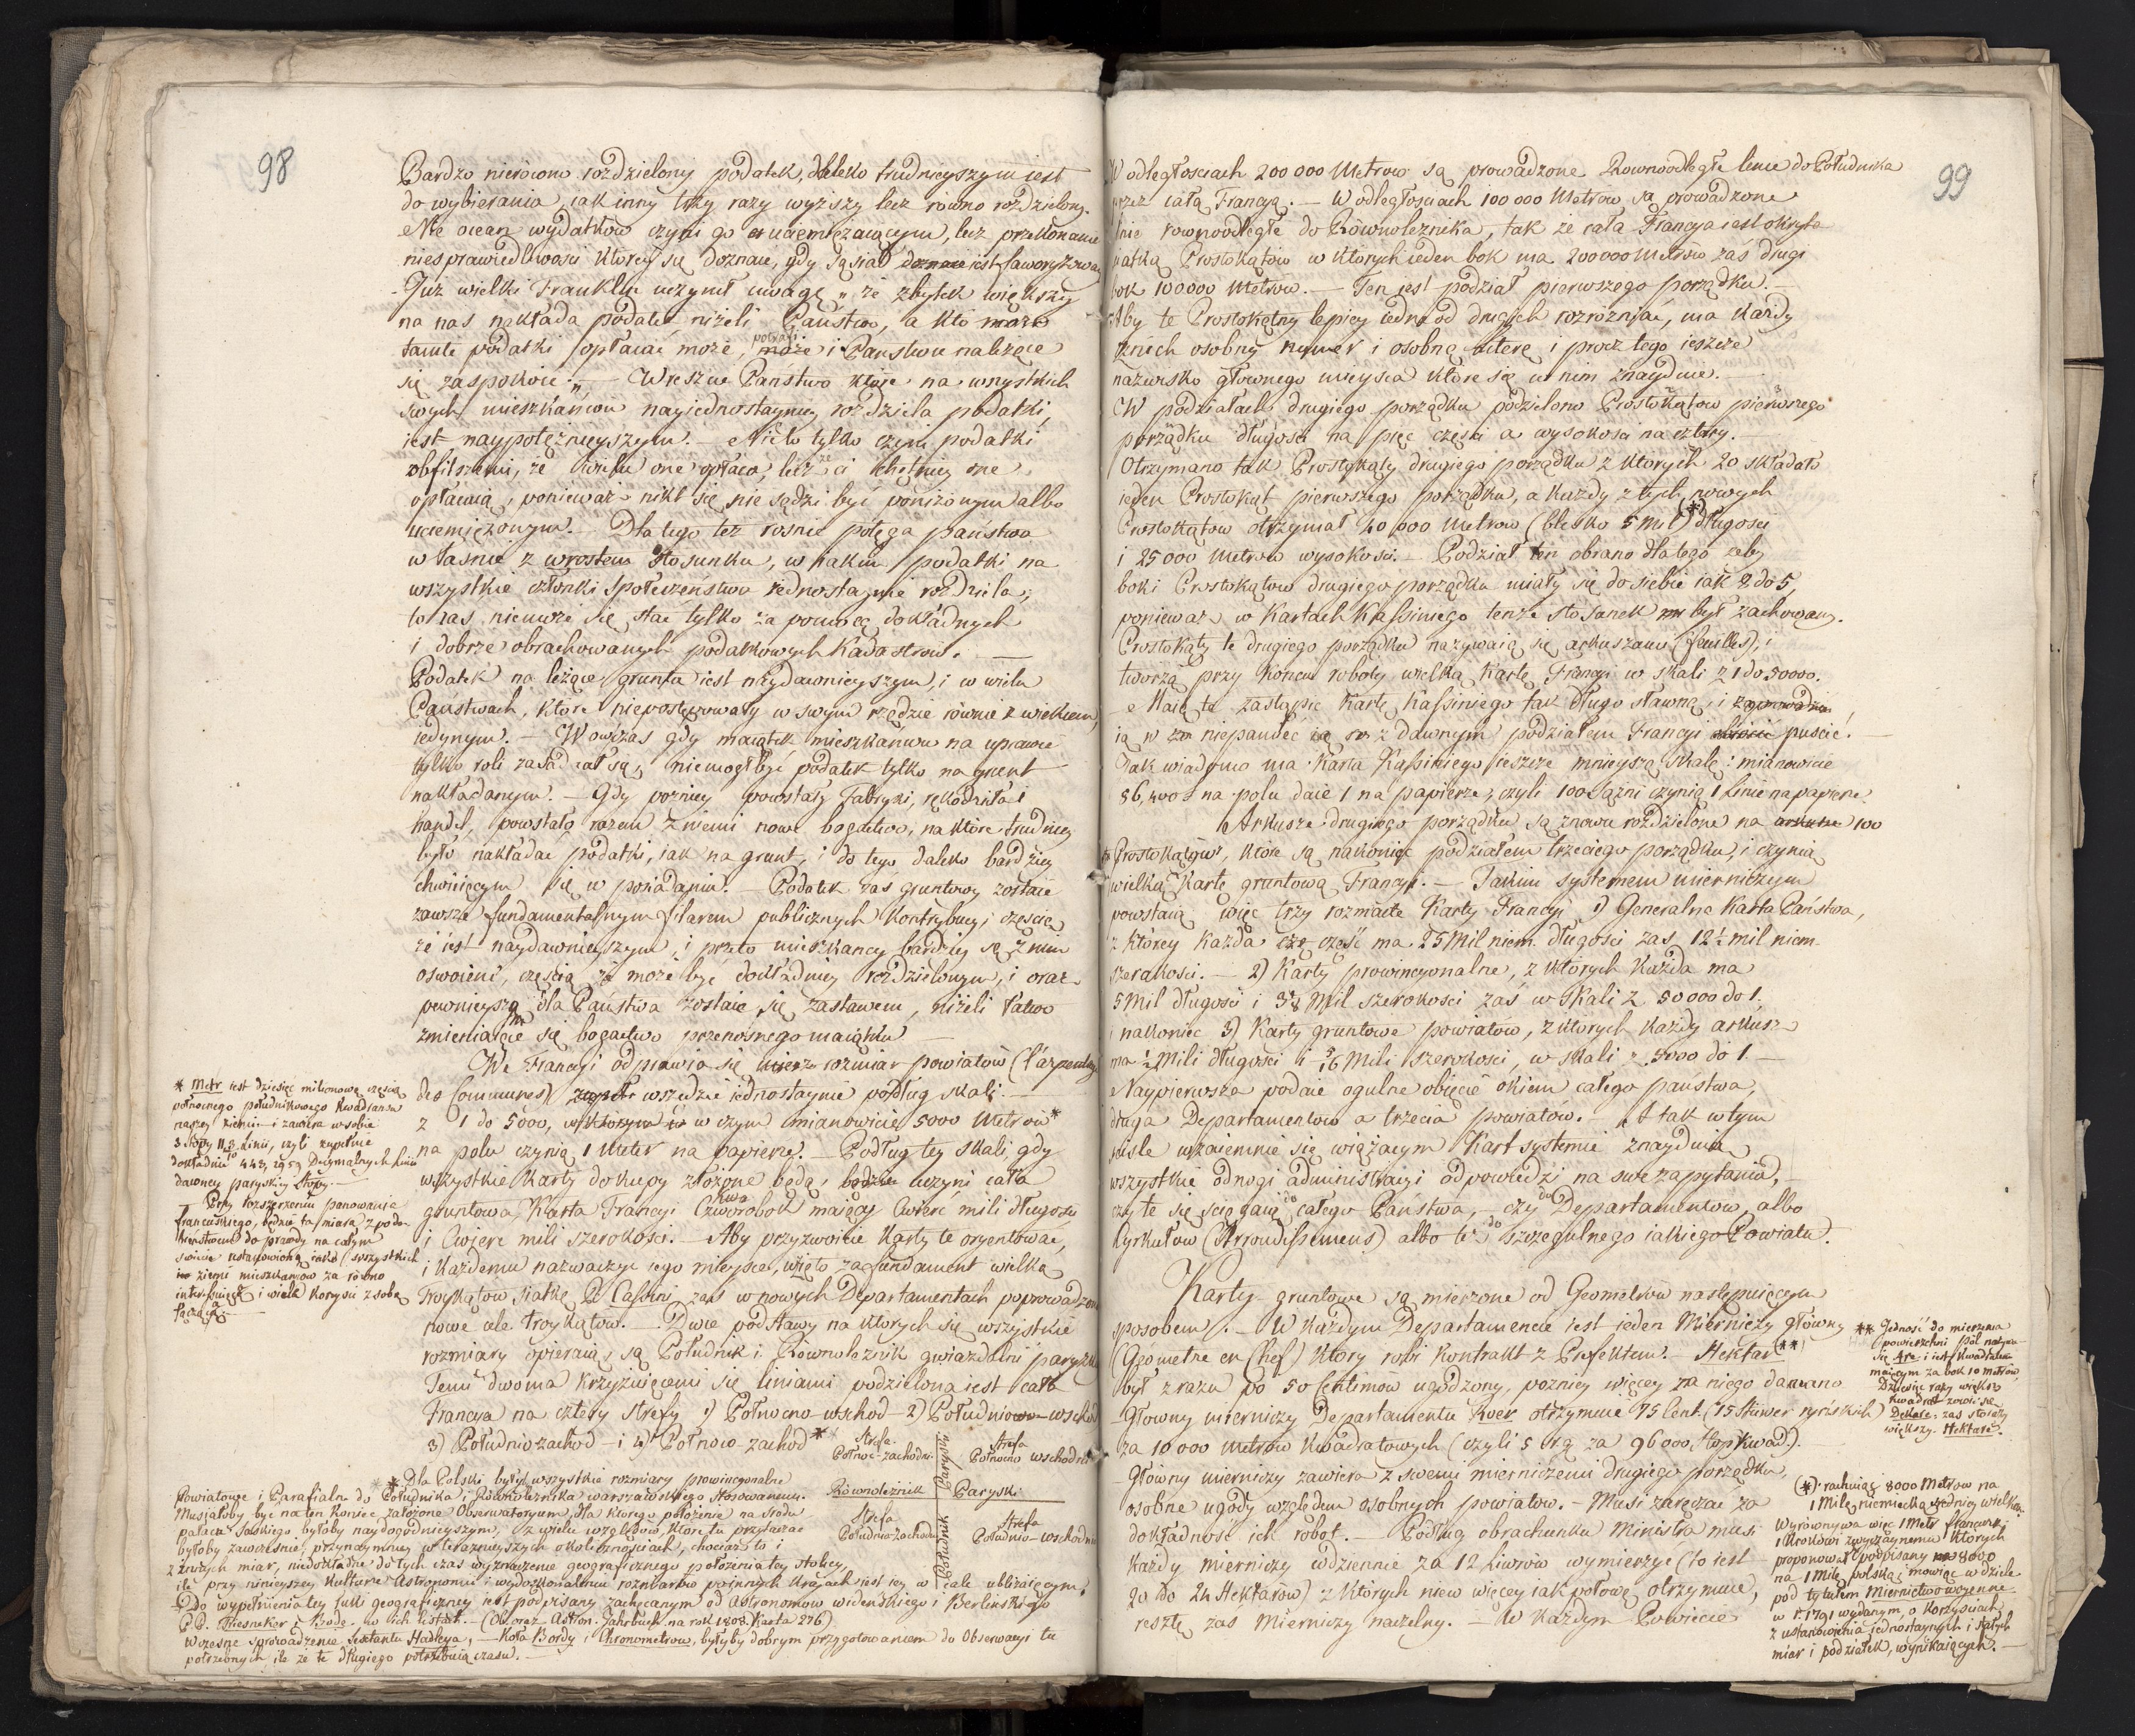 98
Bardzo nierówno rozdzielony podatek, daleko trudnieyszym iest
do wybierania, iak inny trzy razy wyższy lecz rowno rozdzielony.
Nie ocean wydatków czyni go uciemiężaiącym, lecz przekonanie
niesprawiedliwości ktorey się doznaie, gdy sąsiad doznaie iest faworyzowany
Już wielki Franklin uczynił uwagę „ że zbytek większy
na nas nakłada podatek niżeli Państwo, a kto może
tamte podatki opłacać może, może i Państwu należące
potrafi
się zaspokoić „ — Wreszcie Państwo które na wszystkich
swych mieszkańców nayiednostayniey rozdziela podatki,
iest naypotężnieyszym. — Nie to tylko czyni podatki
obfitszemi, że wielu one opłaca, lecz że ci chętniey one
opłacaią, ponieważ nikt się nie sądzi być poniżonym albo
uciemiężonym. — Dla tego też rosnie potęga państwa
własnie z wrostem stosunku, w iakim podatki na
wszystkie członki społeczeństwa iednostaynie rozdziela,
to zas niemoże się stać tylko za pomocą dokładnych
i dobrze obrachowanych podatkowych Kadastrów. —
Podatek na leżące grunta iest naydawnieyszym, i w wielu
Państwach, które niepostępowały w swym rządzie równie z wiekiem,
iedynym. — Wowczas gdy maiątek mieszkańców na uprawie
tylko roli zasadzał się, niemogł być podatek tylko na grunt
nakładanym. — Gdy pozniey powstały Fabryki, rękodzieła i
handel, powstało razem z niemi nowe bogactwo, na które trudniey
było nakładać podatki, iak na grunt, i do tego daleko bardziey
chwieiącym się w posiadaniu. — Podatek zas gruntowy zostaie
zawsze fundamentalnym filarem publicznych Kontrybucyi, częścią
że iest naydawnieyszym, i przeto mieszkancy bardziey się z nim
oswoieni, częścią że może być dokładniey rozdzielonym, i oraz
pewnieyszą dla Państwa zostaie się zastawem, niżeli łatwo
zmieniaiące się bogactwo przenosnego maiątku —
We Francyi odprawia się rozmiar powiatów (l'arpentage
des Communes) wszędzie iednostaynie podług skali —
z 1 do 5000, w czym mianowicie 5000 Metrów*
na polu czynią 1 Meter na papierze. — Podług tey skali, gdy
wszystkie Karty do kupy złożone będą, uczyni cała
gruntowa Karta Francyi Czworobok maiący Cwierć mili długości
i Cwierć mili szerokości. — Aby przyzwoicie Karty te oryentować,
i każdemu naznaczyć iego mieysce, wzięto za fundament wielką
troykątow siatkę D. Cassini, zas w nowych Departamentach poprowadzono
nowe cale troykątow. — Dwie podstawy na ktorych się wszystkie
rozmiary opieraią, są Południk i Rownoleżnik gwiazdolni paryzki
Temi dwoma krzyżuiącemi się liniami podzielona iest cała
Francya na cztery strefy 1) Połnocno-wschod — 2) Południowo-wschod
3) Południozachod — i 4) Połnoco-zachod **
* Metr iest dziesięć milionową częścią
połnocnego południkowego Kwadransa
naszey ziemi — i zawiera w sobie
3 stopy 11 Linii, czyli zupełnie
dokładnie 443, 2959 Decymalnych Linii
dawney paryskiey stopy. —
— Przy rozszerzeniu panowania
francuskiego, będzie ta miara z podo-
bieństwem do prawdy na całym
swiecie ustanowioną iako (wszystkich
ziemi mieszkańców za rowno
interessuiąca i wielk korzysci z sobą
łącząca —
Strefa Połnoc-zachodni. Strefa Połnocno wschodnia
Równoleżnik Paryski
Strefa Południozachodnia Strefa Południo-wschodnia
Południk Paryski
** Dla Polski byłyby wszystkie rozmiary prowincyonalne
Powiatowe i Parafialne do Południka i Równoleżnika warszawskiego stosowanemi.
Musiałoby być na ten koniec założone Obserwatoryum, dla ktorego położenie na srodku
pałacu Saskiego byłoby naydogodnieyszym, z wielu względów, ktore tu przytaczać
byłoby zawczesnie, przynaymniey w teraznieyszych okolicznosciach, chociaż to i
z innych miar, niedokładne do tych czas wyznaczenie geograficznego położenia tey stolicy,
ile przy ninieyszey Kulturze Astronomii i wydoskonaleniu rozmiarow poiennych Kraiach iest iey w cale ubliżaiącym.
— Do wypełnienia tey luki geograficzney iest podpisany zachęcanym od Astronomow wideńskiego i Berlinskiego
P.P. Triesneker i Bode, w ich listach. — (Obacz Astron. Jahrbuch na rok 1808. Karta 276)
Wczesne sprowadzenie Sextantu Hadleya, — Koła Bordy i Chronometrow, byłyby dobrym przygotowaniem do Obserwacyi tu
potrzebnych, ile że te długiego potrzebuią czasu. —
99
W odległosciach 200 000 Metrow są prowadzone Rownoodległe linie do Południka
przez całą Francyą. — W odległosciach 100 000 Metrow są prowadzone
linie rownoodległe do Równoleżnika, tak że cała Francya iest okryta
siatką Prostokątów w ktorych ieden bok ma 200000 Metrów zaś drugi
bok 100000 Metrów. — Ten iest podział pierwszego porządku. —
Aby te Prostokątny lepiey iedne od drugich rozróżniać, ma każdy
z nich osobny numer i osobną literę, i procz tego ieszcze
nazwisko głownego mieysca które się w nim znayduie. —
W podziałach drugiego porządku podzielono Prostokątow pierwszego
porządku długości na pięc częsci a wysokosci na cztery. —
Otrzymano tak Prostokąty drugiego porządku z ktorych 20 składało
ieden Prostokąt pierwszego porządku, a każdy z tych nowych
Prostokątow otrzymał 40 000 Metrow (blisko 5 Mil (*) długosci
i 25 000 Metrow wysokosci. — Podział ten obrano dlatego żeby
boki Prostokątow drugiego porządku miały się do siebie iak 8 do 5,
ponieważ w Kartach Kassiniego tenże stosunek był zachowany.
Prostokąty te drugiego porządku nazywaią się arkuszami (feuilles), i
tworzą przy końcu roboty wielką Kartę Francyi w skali z 1 do 50000.
Maią te zastąpić Kartę Kassiniego tak długo sławną, i
ią w niepamięć z dawnym podziałem Francyi puscić. —
Jak wiadomo ma Karta Kassiniego ieszcze mnieyszą skalę: mianowicie
86,400 na polu daie 1 na papierze, czyli 100 sążni czynią 1 linie na papierze.
Arkusze drugiego porządku są znowu rozdzielone na arkusze 100
Prostokątów, które są nakoniec podziałem trzeciego porządku, i czynią
wielką Kartę gruntową Francyi. — Takim systemem mierniczym
powstaią więc trzy rozmaite Karty Francyi 1) Generalna Karta Państwa,
z ktorey każda część ma 25 Mil niem. długosci zas 12½ mil niem.
szerokosci. — 2) Karty prowincyonalne, z których każda ma
5 Mil długości i 3⅛ Mil szerokosci zaś w skali z 50000 do 1.
i nakoniec 3) Karty gruntowe powiatów, z ktorych każdy arkusz
ma ½ Mili długości i 5/16 Mili szerokości, w skali z 5000 do 1. —
Naypierwsza podaie ogulne obięcie okiem całego państwa,
druga Departamentow a trzecia powiatów. — A tak w tym
scisle wzaiemnie się wiążącym Kart systemie znayduią
wszystkie odnogi administracyi odpowiedź na swe zapytania, —
czy te się sciągaią do całego Państwa, — czy do Departamentow, albo
Cyrkułow (Arrondissemens) albo też do szczegulnego iakiego Powiatu.
Karty gruntowe są mierzone od Geometrów następuiącym
sposobem. — W każdym Departamencie iest ieden Mierniczy główny
(Geometre en Chef) ktory robi kontrakt z Prefektem. — Hektar (**)
był zrazu po 50 Centimów ugodzony, pozniey więcey za niego dawano
Głowny mierniczy Departamentu Roer otrzymuie 75 Cent. (15 Stüwer ryńskich)
za 10 000 metrów Kwadratowych (czyli 5 srg za 96000 stop kwad.).
Główny mierniczy zawiera z swemi mierniczemi drugiego porządku,
osobne ugody względem osobnych powiatow. — Musi zaręczać za
dokładność ich robot. — Podług obrachunku Ministra musi
każdy mierniczy codziennie za 12 Liwrów wymierzyć (to iest
20 do 24 Hektarów) z ktorych niew więcey iak połowę otrzymuie,
resztę zas Mierniczy naczelny. — W każdym Powiecie
** Jedność do mierzenia
powierzchni pól nazywa
się Are i iest kwadratem
maiącym za bok 10 metrów,
Dziesięc razy większy
kwadrat zowie się
Dekare, zas sto razy
większy Hektare.
(*) rachuiąc 8000 Metrow na
1 Milę niemiecką sredniey wielkosci
Wyrównywa więc 1 Metr francuski
1 Krokowi zwyczaynemu których
proponował podpisany 8000
na 1 milę polską; mówiąc w dziele
pod tytułem Miernictwo woienne
w r. 1791 wydanym, o Korzyściach
z ustanowienia iednostaynych i stałych
miar i podziałek, wynikaiących. —